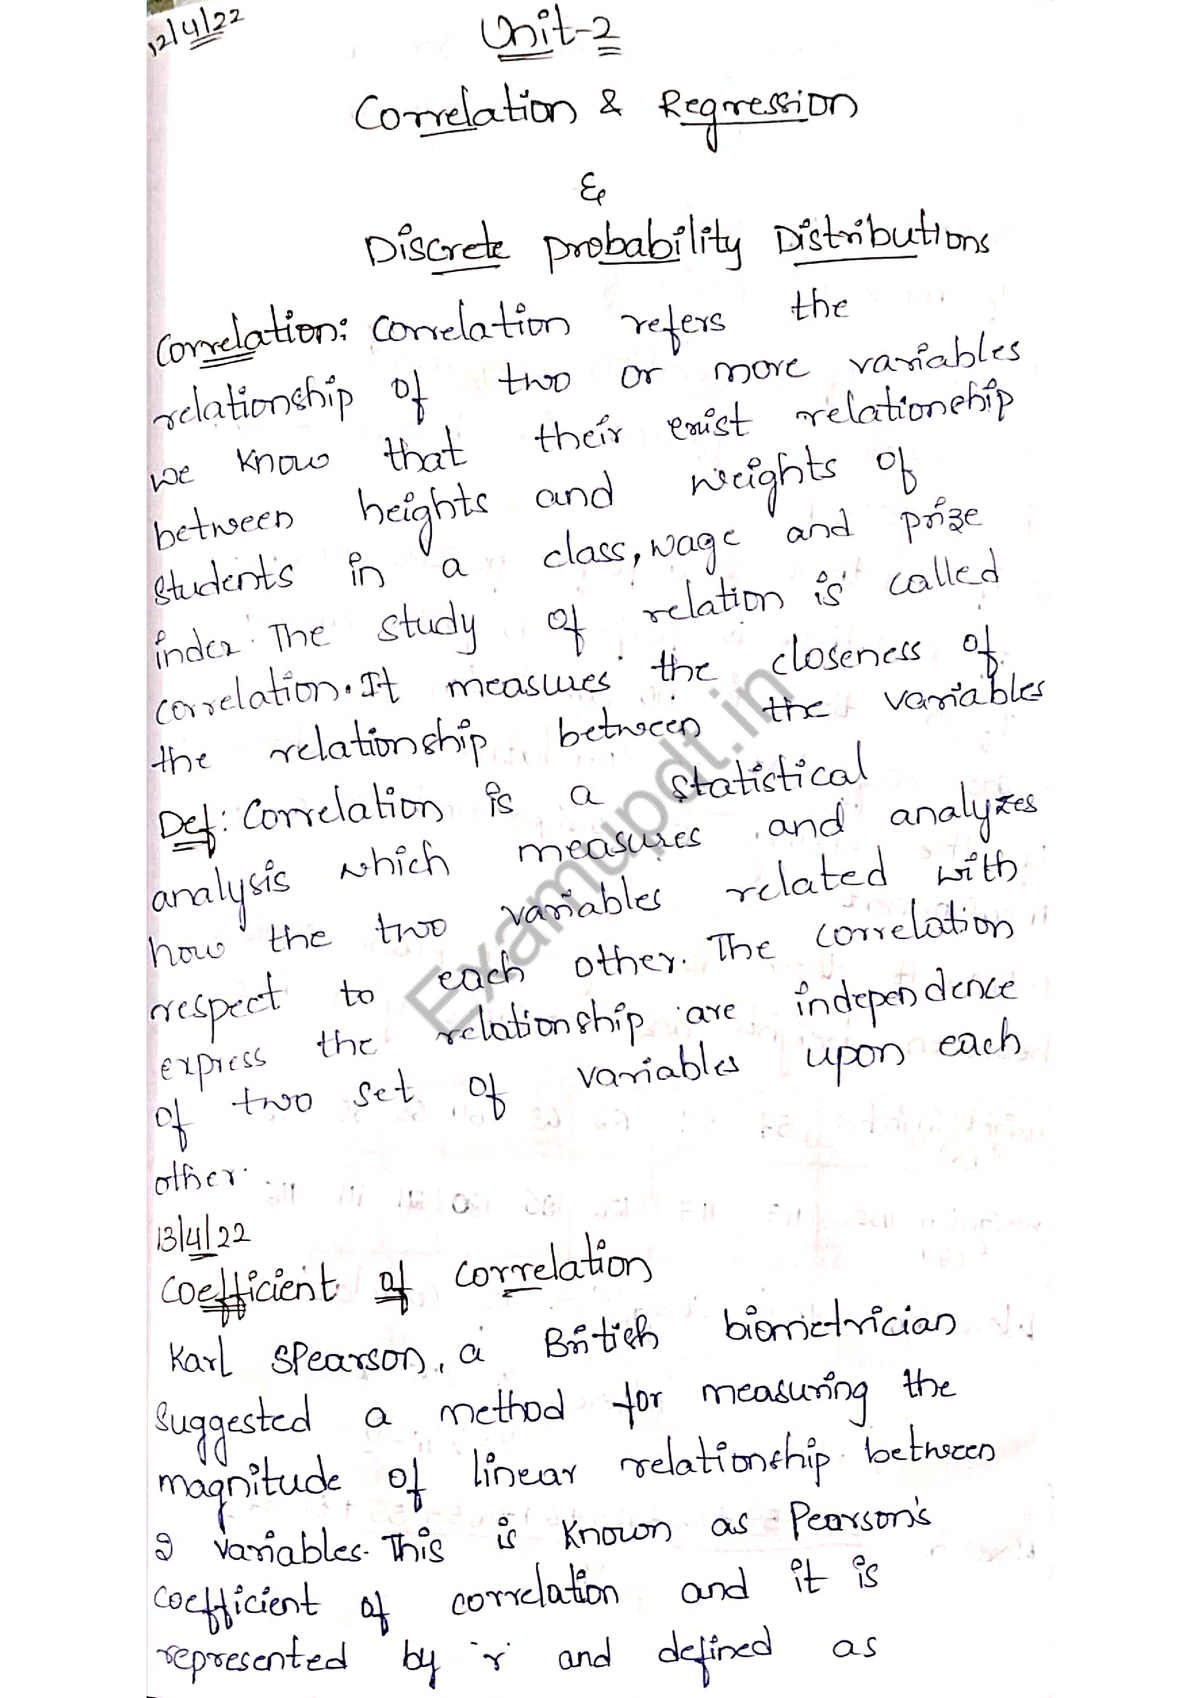 12/4/22
Unit-2
Correlation & Regression
&
Discrete probability Distributions
Correlation: Correlation refers the
relationship of two or more variables
we know that their exist relationship
between heights and weights of
students in a class, wage and prize
index. The study of relation is called
correlation. It measures the closeness of
the relationship between the variables
Def: Correlation is a statistical
analysis which measures and analyzes
how the two variables related with
respect to each other. The correlation
express the relationship are independence
of two set of variables upon each
other.
13/4/22
Coefficient of correlation
Karl Spearson, a British biometrician
suggested a method for measuring the
magnitude of linear relationship between
2 variables. This is known as Pearson's
coefficient of correlation and it is
represented by 'r' and defined as
Examupdt.in